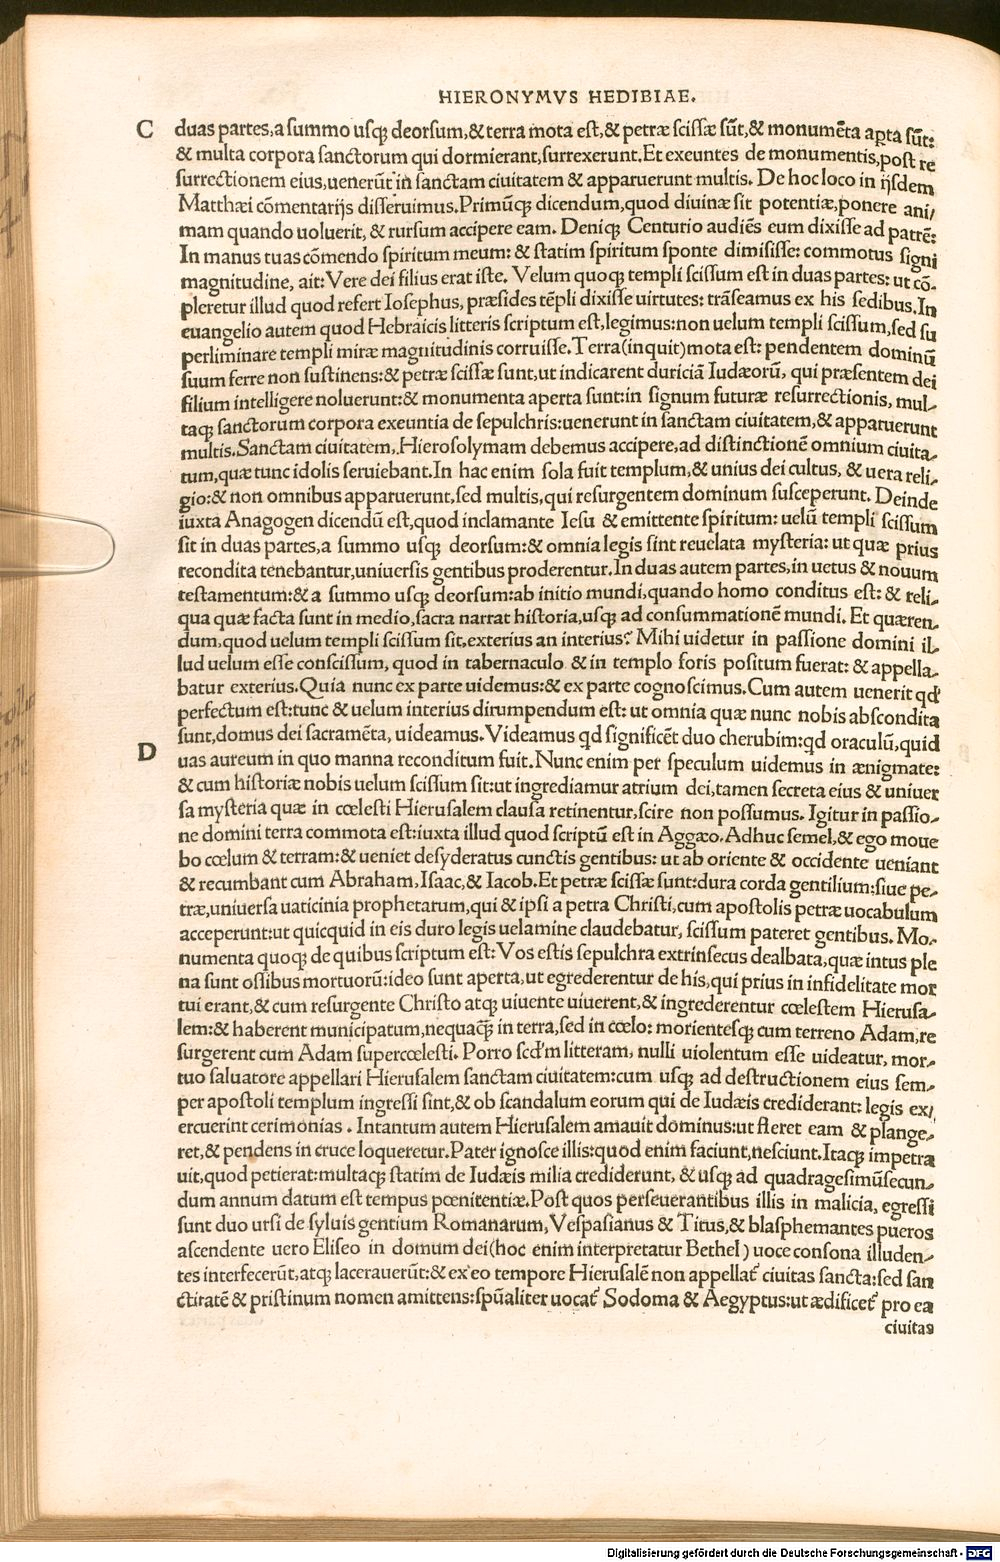 HIERONYMVS HEDIBIAE.
C duas partes,a ſummo uſq; deorſum,&terra mota eſt,& petræ ſciſſæ sūt,& monumēta apta ſūt:
& multa corpora ſanctorum qui dormierant,ſurrexerunt.Et exeuntes de monumentis,poſt re
ſurrectionem eius,uenerūt in ſanctam ciuitatem & apparuerunt multis. De hoc loco in ijſdem
Matthæi cōmentarijs diſſeruimus.Primūcp dicendum,quod diuinæ ſit potentiæ,ponere ani/
mam quando uoluerit, & rurſum accipere eam. Deniq; Centurio audiēs eum dixiſſe ad patrē:
In manus tuas cōmendo ſpiritum meum: & ſtatim ſpiritum ſponte dimiſiſſe: commotus ſigni
magnitudine, ait: Vere dei filius erat iſte. Velum quoq; templi ſciſſum eſt in duas partes: ut cō-
pleretur illud quod refert Ioſephus, præſides tēpli dixiſſe uirtutes: trāſeamus ex his ſedibus.In
euangelio autem quod Hebraicis litteris ſcriptum eſt,legimus:non uelum templi ſciſſum,ſed ſu
perliminare templi miræ magnitudinis corruiſſe.Terra(inquit)mota eſt: pendentem dominū
ſuum ferre non ſuſtinens:& petræ ſciſſæ ſunt,ut indicarent duriciā Iudæorū, qui præſentem dei
filium intelligere noluerunt:& monumenta aperta ſunt:in ſignum futuræ reſurrectionis, mul-
taq; ſanctorum corpora exeuntia de ſepulchris:uenerunt in ſanctam ciuitatem,& apparuerunt
multis.Sanctam ciuitatem, Hieroſolymam debemus accipere,ad diſtinctionē omnium ciuita-
tum,quæ tunc idolis ſeruiebant.In hac enim ſola fuit templum,& unius dei cultus, & uera reli-
gio:& non omnibus apparuerunt,ſed multis,qui reſurgentem dominum ſuſceperunt. Deinde
iuxta Anagogen dicendū eſt,quod inclamante Ieſu & emittente ſpiritum: uelū templi ſciſſum
ſit in duas partes,a ſummo uſq; deorſum:& omnia legis ſint reuelata myſteria: ut quæ prius
recondita tenebantur,uniuerſis gentibus proderentur.In duas autem partes,in uetus & nouum
teſtamentum:& a ſummo uſq; deorſum:ab initio mundi,quando homo conditus eſt: & reli-
qua quæ facta ſunt in medio,ſacra narrat hiſtoria,uſq; ad conſummationē mundi. Et quæren-
dum,quod uelum templi ſciſſum ſit,exterius an interius? Mihi uidetur in paſſione domini il-
lud uelum eſſe conſciſſum, quod in tabernaculo & in templo foris poſitum fuerat: & appella-
batur exterius.Quia nunc ex parte uidemus:& ex parte cognoſcimus.Cum autem uenerit qd
perfectum eſt:tunc & uelum interius dirumpendum eſt: ut omnia quæ nunc nobis abſcondita
ſunt,domus dei ſacramēta, uideamus.Videamus qd ſignificēt duo cherubim:qd oraculū,quid
D uas aureum in quo manna reconditum fuit.Nunc enim per ſpeculum uidemus in ænigmate:
& cum hiſtoriæ nobis uelum ſciſſum ſit:ut ingrediamur atrium dei,tamen ſecreta eius & uniuer
ſa myſteria quæ in cœleſti Hieruſalem clauſa retinentur,ſcire non poſſumus. Igitur in paſſio-
ne domini terra commota eſt:iuxta illud quod ſcriptū eſt in Aggæo.Adhuc ſemel,& ego moue
bo cœlum & terram:& ueniet deſyderatus cunctis gentibus: ut ab oriente & occidente ueniant
& recumbant cum Abraham,Iſaac,& Iacob.Et petræ ſciſſæ ſunt:dura corda gentilium:ſiue pe-
træ,uniuerſa uaticinia prophetarum,qui & ipſi a petra Chriſti,cum apoſtolis petræ uocabulum
acceperunt:ut quicquid in eis duro legis uelamine claudebatur, ſciſſum pateret gentibus. Mo-
numenta quoq; de quibus ſcriptum eſt: Vos eſtis ſepulchra extrinſecus dealbata,quæ intus ple
na ſunt oſſibus mortuorū:ideo ſunt aperta,ut egrederentur de his,qui prius in infidelitate mor
tui erant,& cum reſurgente Chriſto atq; uiuente uiuerent,& ingrederentur cœleſtem Hieruſa-
lem:& haberent municipatum,nequaq̄; in terra,ſed in cœlo: morienteſq; cum terreno Adam,re
ſurgerent cum Adam ſupercœleſti. Porro ſcd'm litteram, nulli uiolentum eſſe uideatur, mor-
tuo ſaluatore appellari Hieruſalem ſanctam ciuitatem:cum uſq; ad deſtructionem eius ſem-
per apoſtoli templum ingreſſi ſint,& ob ſcandalum eorum qui de Iudæis crediderant: legis ex/
ercuerint cerimonias . Intantum autem Hieruſalem amauit dominus:ut fleret eam & plange-
ret,& pendens in cruce loqueretur.Pater ignoſce illis:quod enim faciunt,neſciunt.Itaq; impetra
uit,quod petierat:multaq; ſtatim de Iudæis milia crediderunt, & uſq; ad quadrageſimūſecun-
dum annum datum eſt tempus pœnitentiæ.Poſt quos perſeuerantibus illis in malicia, egreſſi
ſunt duo urſi de ſyluis gentium Romanarum,Veſpaſianus & Titus,& blaſphemantes pueros
aſcendente uero Eliſeo in domum dei(hoc enim interpretatur Bethel) uoce conſona illuden-
tes interfecerūt,atq; lacerauerūt:& ex eo tempore Hieruſalē non appellat' ciuitas ſancta:ſed ſan
ctitatē & priſtinum nomen amittens:ſpūaliter uocat' Sodoma & Aegyptus:ut ædificet' pro ea
ciuitas
Digitalisierung gefördert durch die Deutsche Forschungsgemeinschaft - DFG